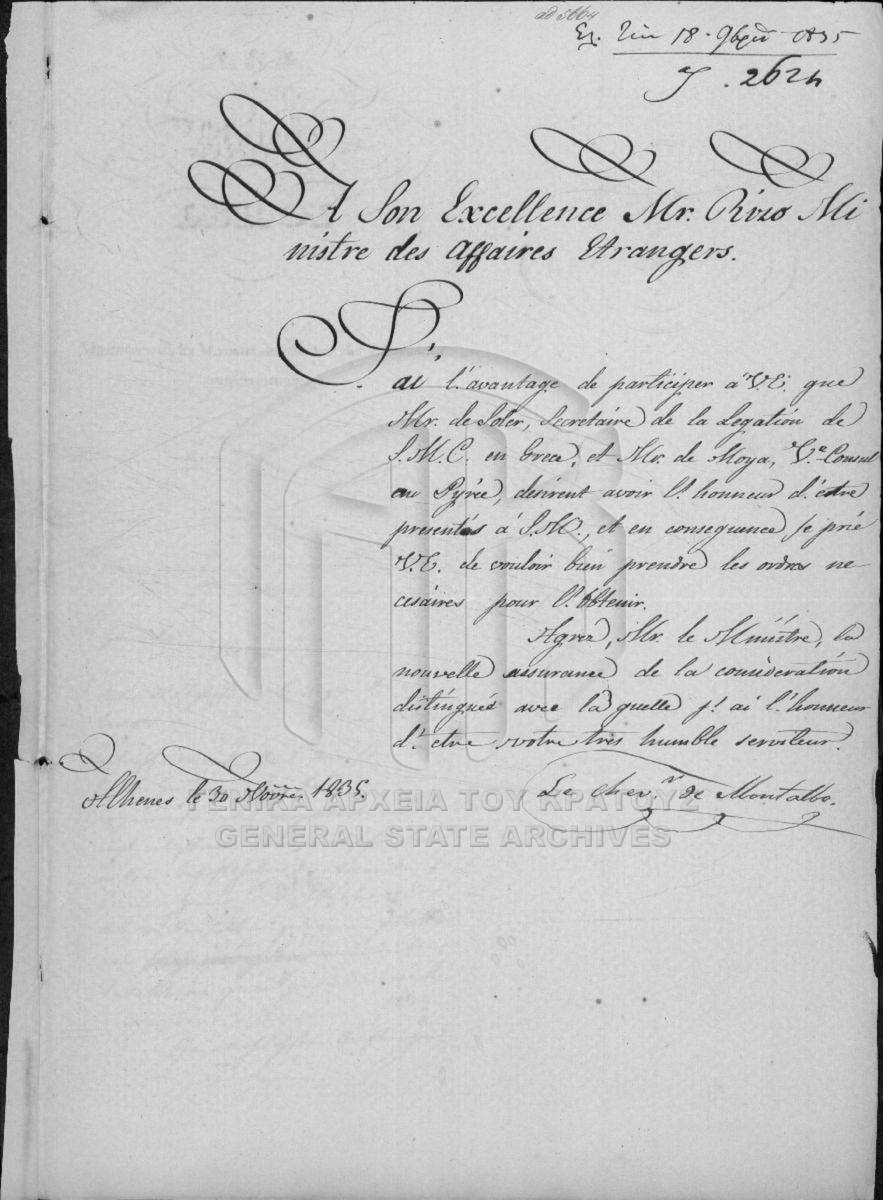 ad 5664
18 9βρίου 1835
2624
A Son Excellence Mr. Rizo Mi
nistre des affaires Etrangers.
J'
ai l'avantage de participer á V.E. que
Mr. de Soler, Secretaire de la Legation de
S.M.C. en Grece, et Mr. de Moya, V.e Consul
au Pyrée, desirent avoir l'honneur d'etre
presentés á S.M., et en consequance je prie
V.E. de vouloir bien prendre les ordres ne
cesaires pour l'obtenir.
Agreé, Mr. le Ministre, la
nouvelle assurance de la consideration
distingueé avec la quelle j'ai l'honneur
d'etre votre tres humble serviteur.
Athenes le 30 Novre 1835.
Le Chev.r de Montalbo.
ΓΕΝΙΚΑ ΑΡΧΕΙΑ ΤΟΥ ΚΡΑΤΟΥΣ
GENERAL STATE ARCHIVES